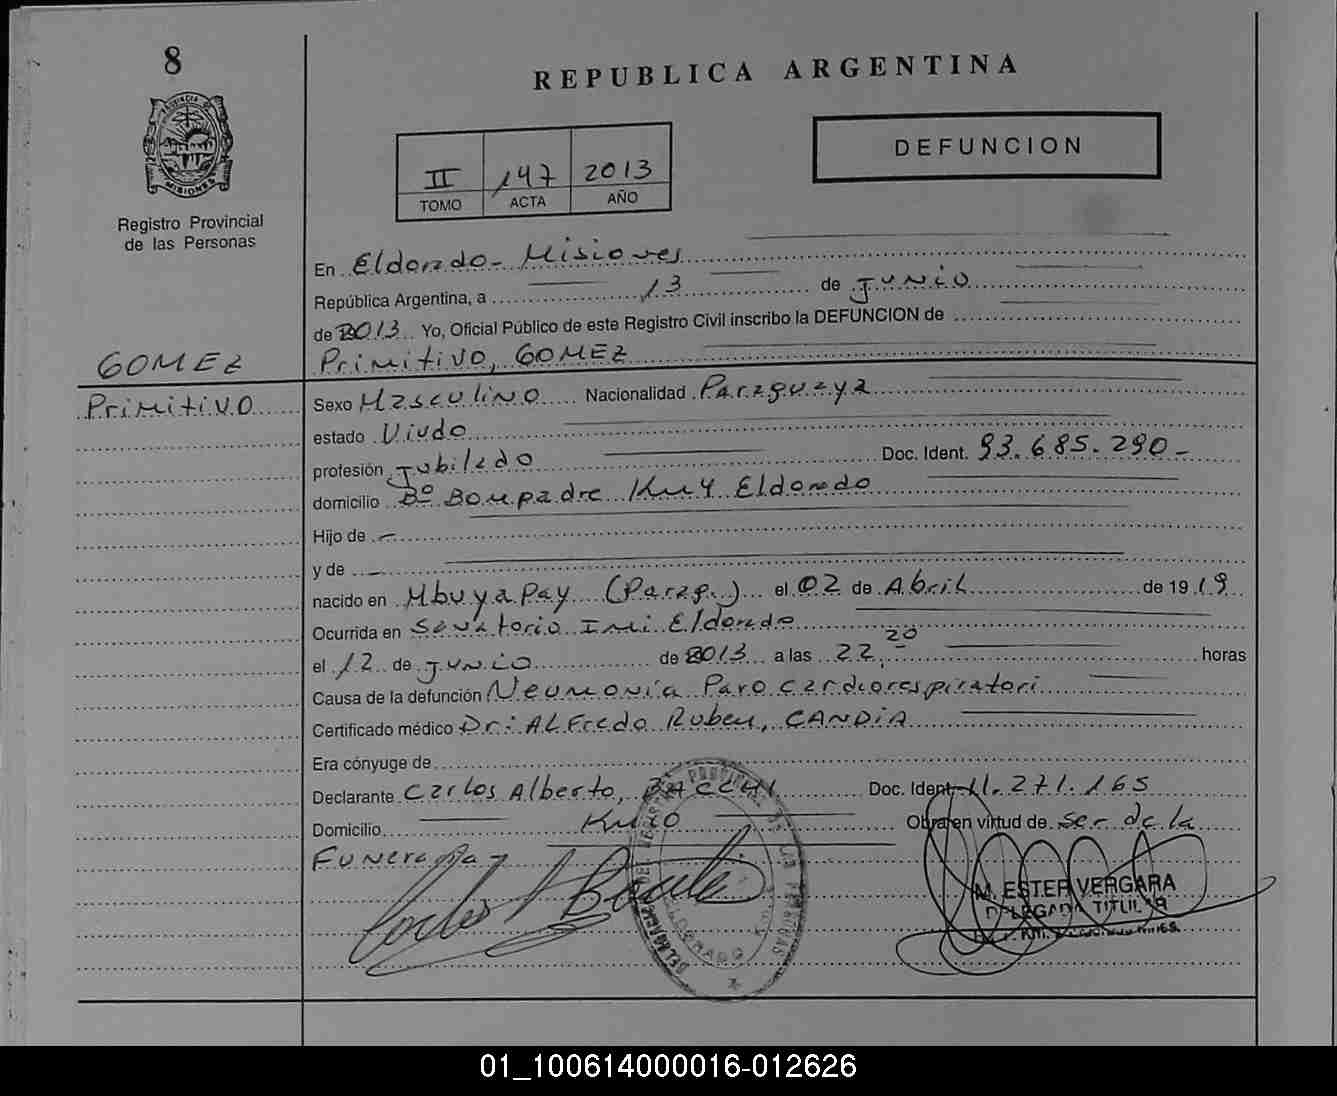 8
REPUBLICA ARGENTINA
PROVINCIA DE MISIONES
Registro Provincial
de las Personas
II 147 2013
TOMO ACTA AÑO
DEFUNCION
En Eldorado - Misiones
República Argentina, a 13 de Junio
de 2013 Yo, Oficial Público de este Registro Civil inscribo la DEFUNCION de
GOMEZ Primitivo, GOMEZ
Primitivo Sexo Masculino Nacionalidad Paraguaya
estado Viudo
profesión Jubilado Doc. Ident. 93.685.290-
domicilio Bº Bompadre Km 4 Eldorado
Hijo de
y de
nacido en Mbuyapay (Parag.) el 02 de Abril de 1919
Ocurrida en Sanatorio Imi Eldorado
el 12 de Junio de 2013 a las 22,20 horas
Causa de la defunción Neumonía Paro cardiorespiratori
Certificado médico Dr: Alfredo Ruben, CANDIA
Era cónyuge de
Declarante Carlos Alberto, Doc. Ident. 11.271.165
Domicilio Km 10 Obra en virtud de ser de la
Funeraria
M. ESTER VERGARA
DELEGADA TITULAR
01_100614000016-012626